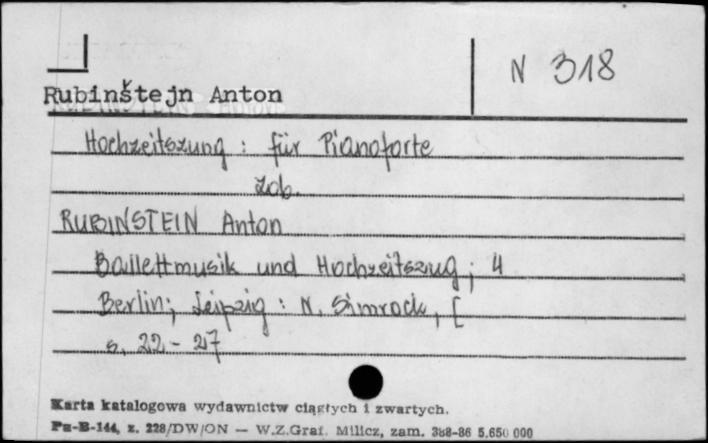 N 318
Rubinštejn Anton
Hochzeitszung : für Pianoforte
zob.
RUBINSTEIN Anton
Ballettmusik und Hochzeitszug ; 4
Berlin ; Leipzig : N. Simrock, [
s. 22-27
Karta katalogowa wydawnictw ciągłych i zwartych.
Pu-B-144, z. 228/DW/ON — W.Z.Graf. Milicz, zam. 388-86 5.650 000